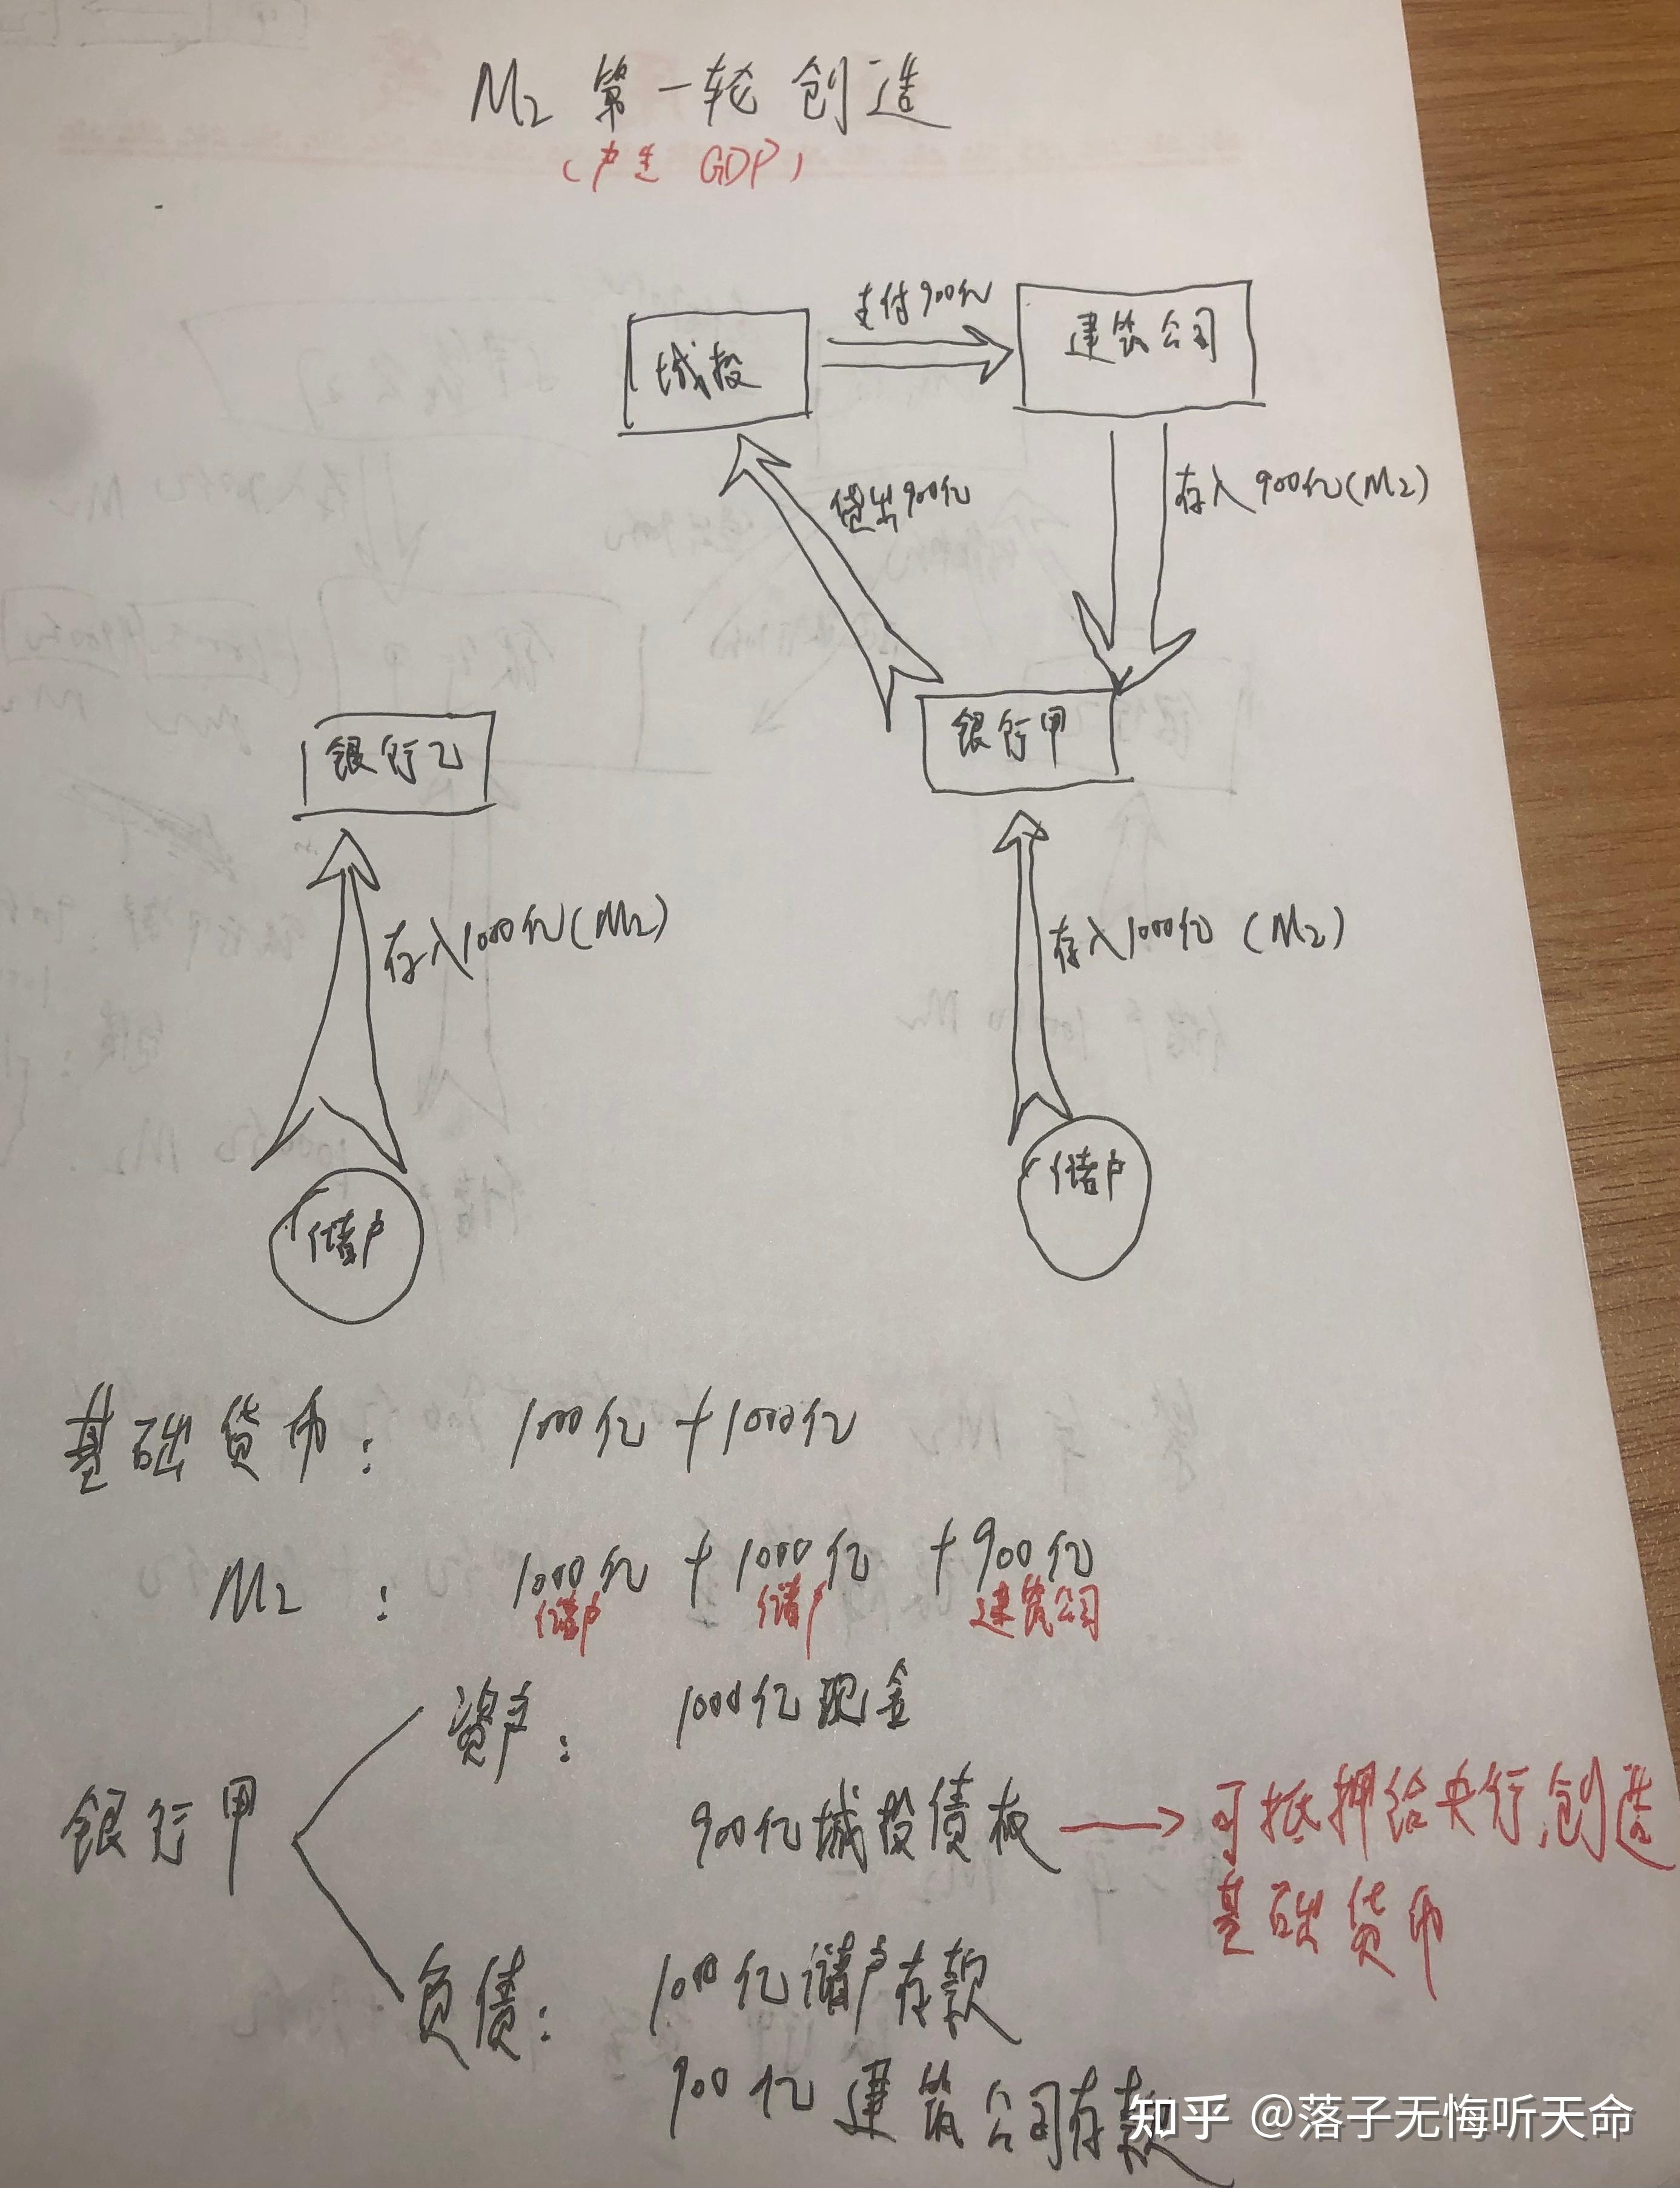 M2 第一轮创造
(产生 GDP)
支付900亿
城投
建筑公司
贷出900亿
存入900亿(M2)
银行乙
银行甲
存入1000亿(M2)
存入1000亿 (M2)
储户
储户
基础货币: 1000亿+1000亿
M2 : 1000亿 +1000亿 +900亿
储户 储户 建筑公司
资产: 1000亿现金
银行甲
900亿城投债权 → 可抵押给央行,创造
基础货币
负债: 1000亿储户存款
900亿建筑公司存款
知乎 @落子无悔听天命